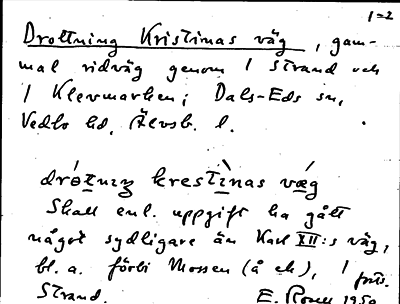 1=2
Drottning Kristinas väg, gam-
mal ridväg genom 1 Strand och
1 Klevmarken; Dals-Eds sn,
Vedbo hd, Älvsb. l.
drótnıng krestìnas vǽg
Skall enl. uppgift ha gått
något sydligare än Karl XII:s väg,
bl. a. förbi Mossen (å ek), 1
Strand.
E. 1950